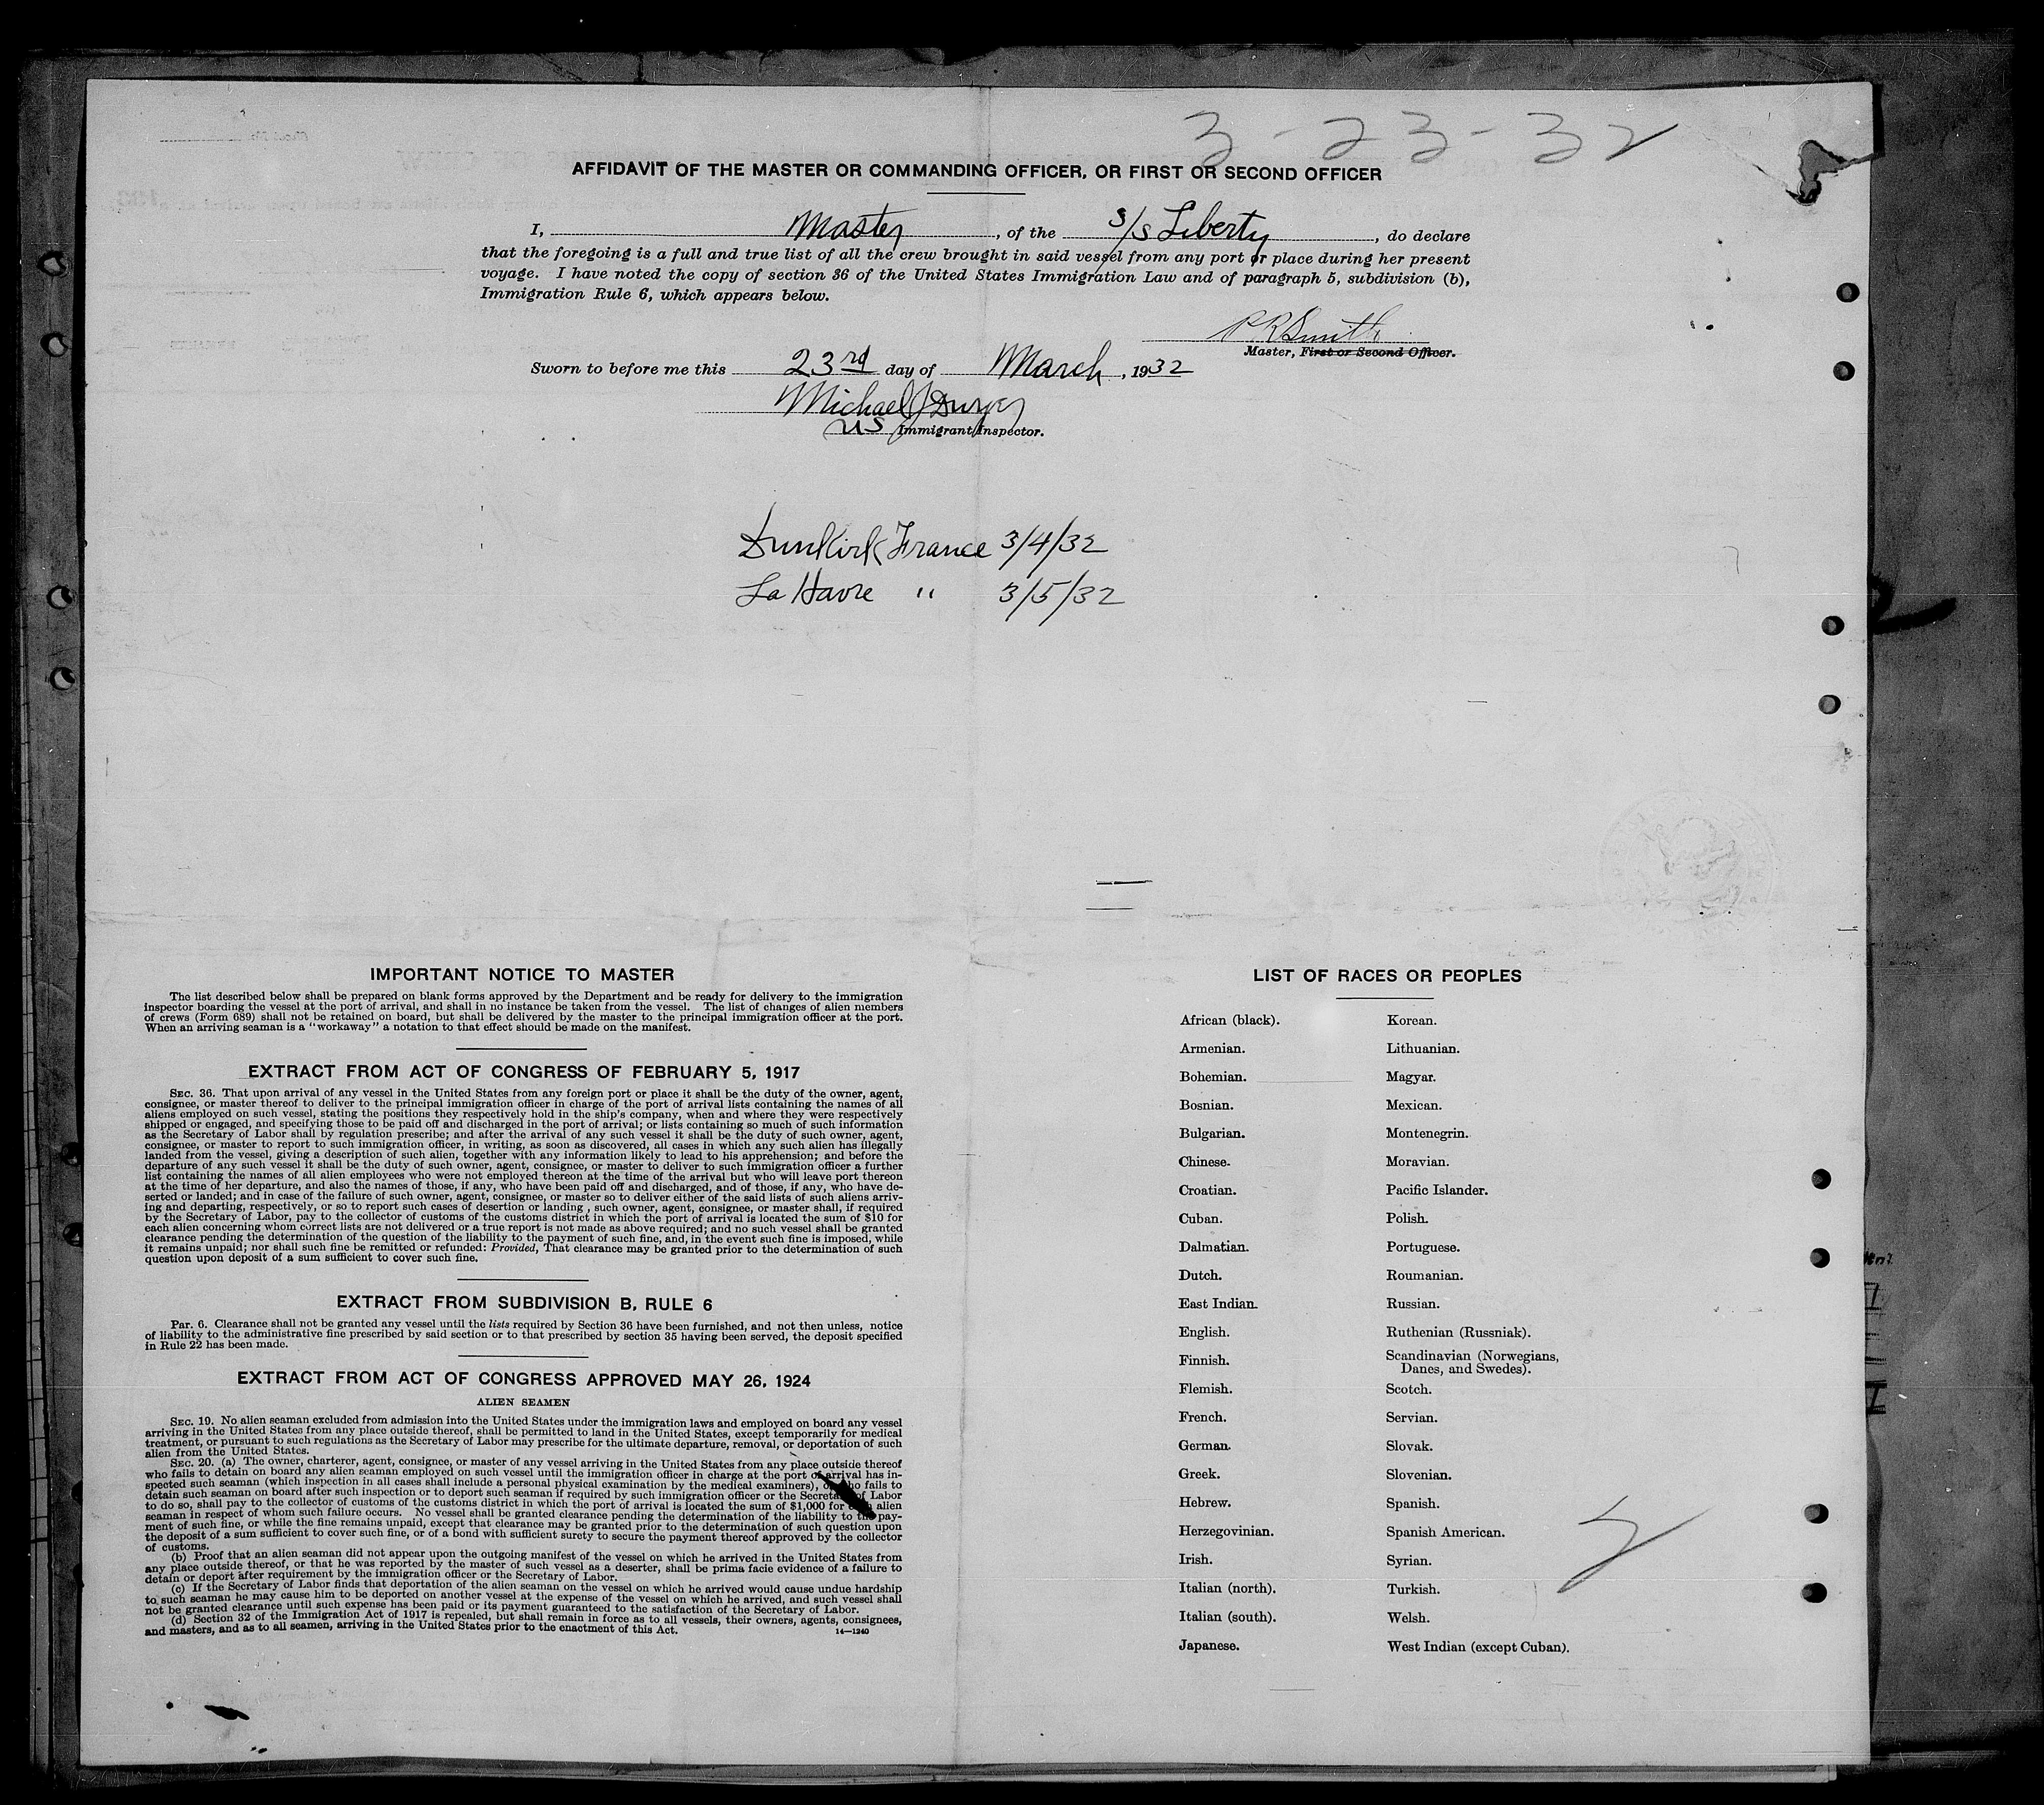 3-23-32
AFFIDAVIT OF THE MASTER OR COMMANDING OFFICER, OR FIRST OR SECOND OFFICER
I, Master, of the s/s Liberty, do declare
that the foregoing is a full and true list of all the crew brought in said vessel from any port or place during her present
voyage. I have noted the copy of section 36 of the United States Immigration Law and of paragraph 5, subdivision (b),
Immigration Rule 6, which appears below.
P R Smith
Master, First or Second Officer.
Sworn to before me this 23rd day of March, 1932
Michael J Dwyer
US Immigrant Inspector.
Dunkirk France 3/4/32
La Havre " 3/5/32
IMPORTANT NOTICE TO MASTER
The list described below shall be prepared on blank forms approved by the Department and be ready for delivery to the immigration
inspector boarding the vessel at the port of arrival, and shall in no instance be taken from the vessel. The list of changes of alien members
of crews (Form 689) shall not be retained on board, but shall be delivered by the master to the principal immigration officer at the port.
When an arriving seaman is a "workaway" a notation to that effect should be made on the manifest.
EXTRACT FROM ACT OF CONGRESS OF FEBRUARY 5, 1917
SEC. 36. That upon arrival of any vessel in the United States from any foreign port or place it shall be the duty of the owner, agent,
consignee, or master thereof to deliver to the principal immigration officer in charge of the port of arrival lists containing the names of all
aliens employed on such vessel, stating the positions they respectively hold in the ship's company, when and where they were respectively
shipped or engaged, and specifying those to be paid off and discharged in the port of arrival; or lists containing so much of such information
as the Secretary of Labor shall by regulation prescribe; and after the arrival of any such vessel it shall be the duty of such owner, agent,
consignee, or master to report to such immigration officer, in writing, as soon as discovered, all cases in which any such alien has illegally
landed from the vessel, giving a description of such alien, together with any information likely to lead to his apprehension; and before the
departure of any such vessel it shall be the duty of such owner, agent, consignee, or master to deliver to such immigration officer a further
list containing the names of all alien employees who were not employed thereon at the time of the arrival but who will leave port thereon
at the time of her departure, and also the names of those, if any, who have been paid off and discharged, and of those, if any, who have de-
serted or landed; and in case of the failure of such owner, agent, consignee, or master so to deliver either of the said lists of such aliens arriv-
ing and departing, respectively, or so to report such cases of desertion or landing , such owner, agent, consignee, or master shall, if required
by the Secretary of Labor, pay to the collector of customs of the customs district in which the port of arrival is located the sum of $10 for
each alien concerning whom correct lists are not delivered or a true report is not made as above required; and no such vessel shall be granted
clearance pending the determination of the question of the liability to the payment of such fine, and, in the event such fine is imposed, while
it remains unpaid; nor shall such fine be remitted or refunded: Provided, That clearance may be granted prior to the determination of such
question upon deposit of a sum sufficient to cover such fine.
EXTRACT FROM SUBDIVISION B, RULE 6
PAR. 6. Clearance shall not be granted any vessel until the lists required by Section 36 have been furnished, and not then unless, notice
of liability to the administrative fine prescribed by said section or to that prescribed by section 35 having been served, the deposit specified
in Rule 22 has been made.
EXTRACT FROM ACT OF CONGRESS APPROVED MAY 26, 1924
ALIEN SEAMEN
SEC. 19. No alien seaman excluded from admission into the United States under the immigration laws and employed on board any vessel
arriving in the United States from any place outside thereof, shall be permitted to land in the United States, except temporarily for medical
treatment, or pursuant to such regulations as the Secretary of Labor may prescribe for the ultimate departure, removal, or deportation of such
alien from the United States.
SEC. 20. (a) The owner, charterer, agent, consignee, or master of any vessel arriving in the United States from any place outside thereof
who fails to detain on board any alien seaman employed on such vessel until the immigration officer in charge at the port of arrival has in-
spected such seaman (which inspection in all cases shall include a personal physical examination by the medical examiners), or who fails to
detain such seaman on board after such inspection or to deport such seaman if required by such immigration officer or the Secretary of Labor
to do so, shall pay to the collector of customs of the customs district in which the port of arrival is located the sum of $1,000 for each alien
seaman in respect of whom such failure occurs. No vessel shall be granted clearance pending the determination of the liability to the pay-
ment of such fine, or while the fine remains unpaid, except that clearance may be granted prior to the determination of such question upon
the deposit of a sum sufficient to cover such fine, or of a bond with sufficient surety to secure the payment thereof approved by the collector
of customs.
(b) Proof that an alien seaman did not appear upon the outgoing manifest of the vessel on which he arrived in the United States from
any place outside thereof, or that he was reported by the master of such vessel as a deserter, shall be prima facie evidence of a failure to
detain or deport after requirement by the immigration officer or the Secretary of Labor.
(c) If the Secretary of Labor finds that deportation of the alien seaman on the vessel on which he arrived would cause undue hardship
to such seaman he may cause him to be deported on another vessel at the expense of the vessel on which he arrived, and such vessel shall
not be granted clearance until such expense has been paid or its payment guaranteed to the satisfaction of the Secretary of Labor.
(d) Section 32 of the Immigration Act of 1917 is repealed, but shall remain in force as to all vessels, their owners, agents, consignees,
and masters, and as to all seamen, arriving in the United States prior to the enactment of this Act.
14—1240
LIST OF RACES OR PEOPLES
African (black).
Armenian.
Bohemian.
Bosnian.
Bulgarian.
Chinese.
Croatian.
Cuban.
Dalmatian.
Dutch.
East Indian.
English.
Finnish.
Flemish.
French.
German.
Greek.
Hebrew.
Herzegovinian.
Irish.
Italian (north).
Italian (south).
Japanese.
Korean.
Lithuanian.
Magyar.
Mexican.
Montenegrin.
Moravian.
Pacific Islander.
Polish.
Portuguese.
Roumanian.
Russian.
Ruthenian (Russniak).
Scandinavian (Norwegians,
Danes, and Swedes).
Scotch.
Servian.
Slovak.
Slovenian.
Spanish.
Spanish American.
Syrian.
Turkish.
Welsh.
West Indian (except Cuban).